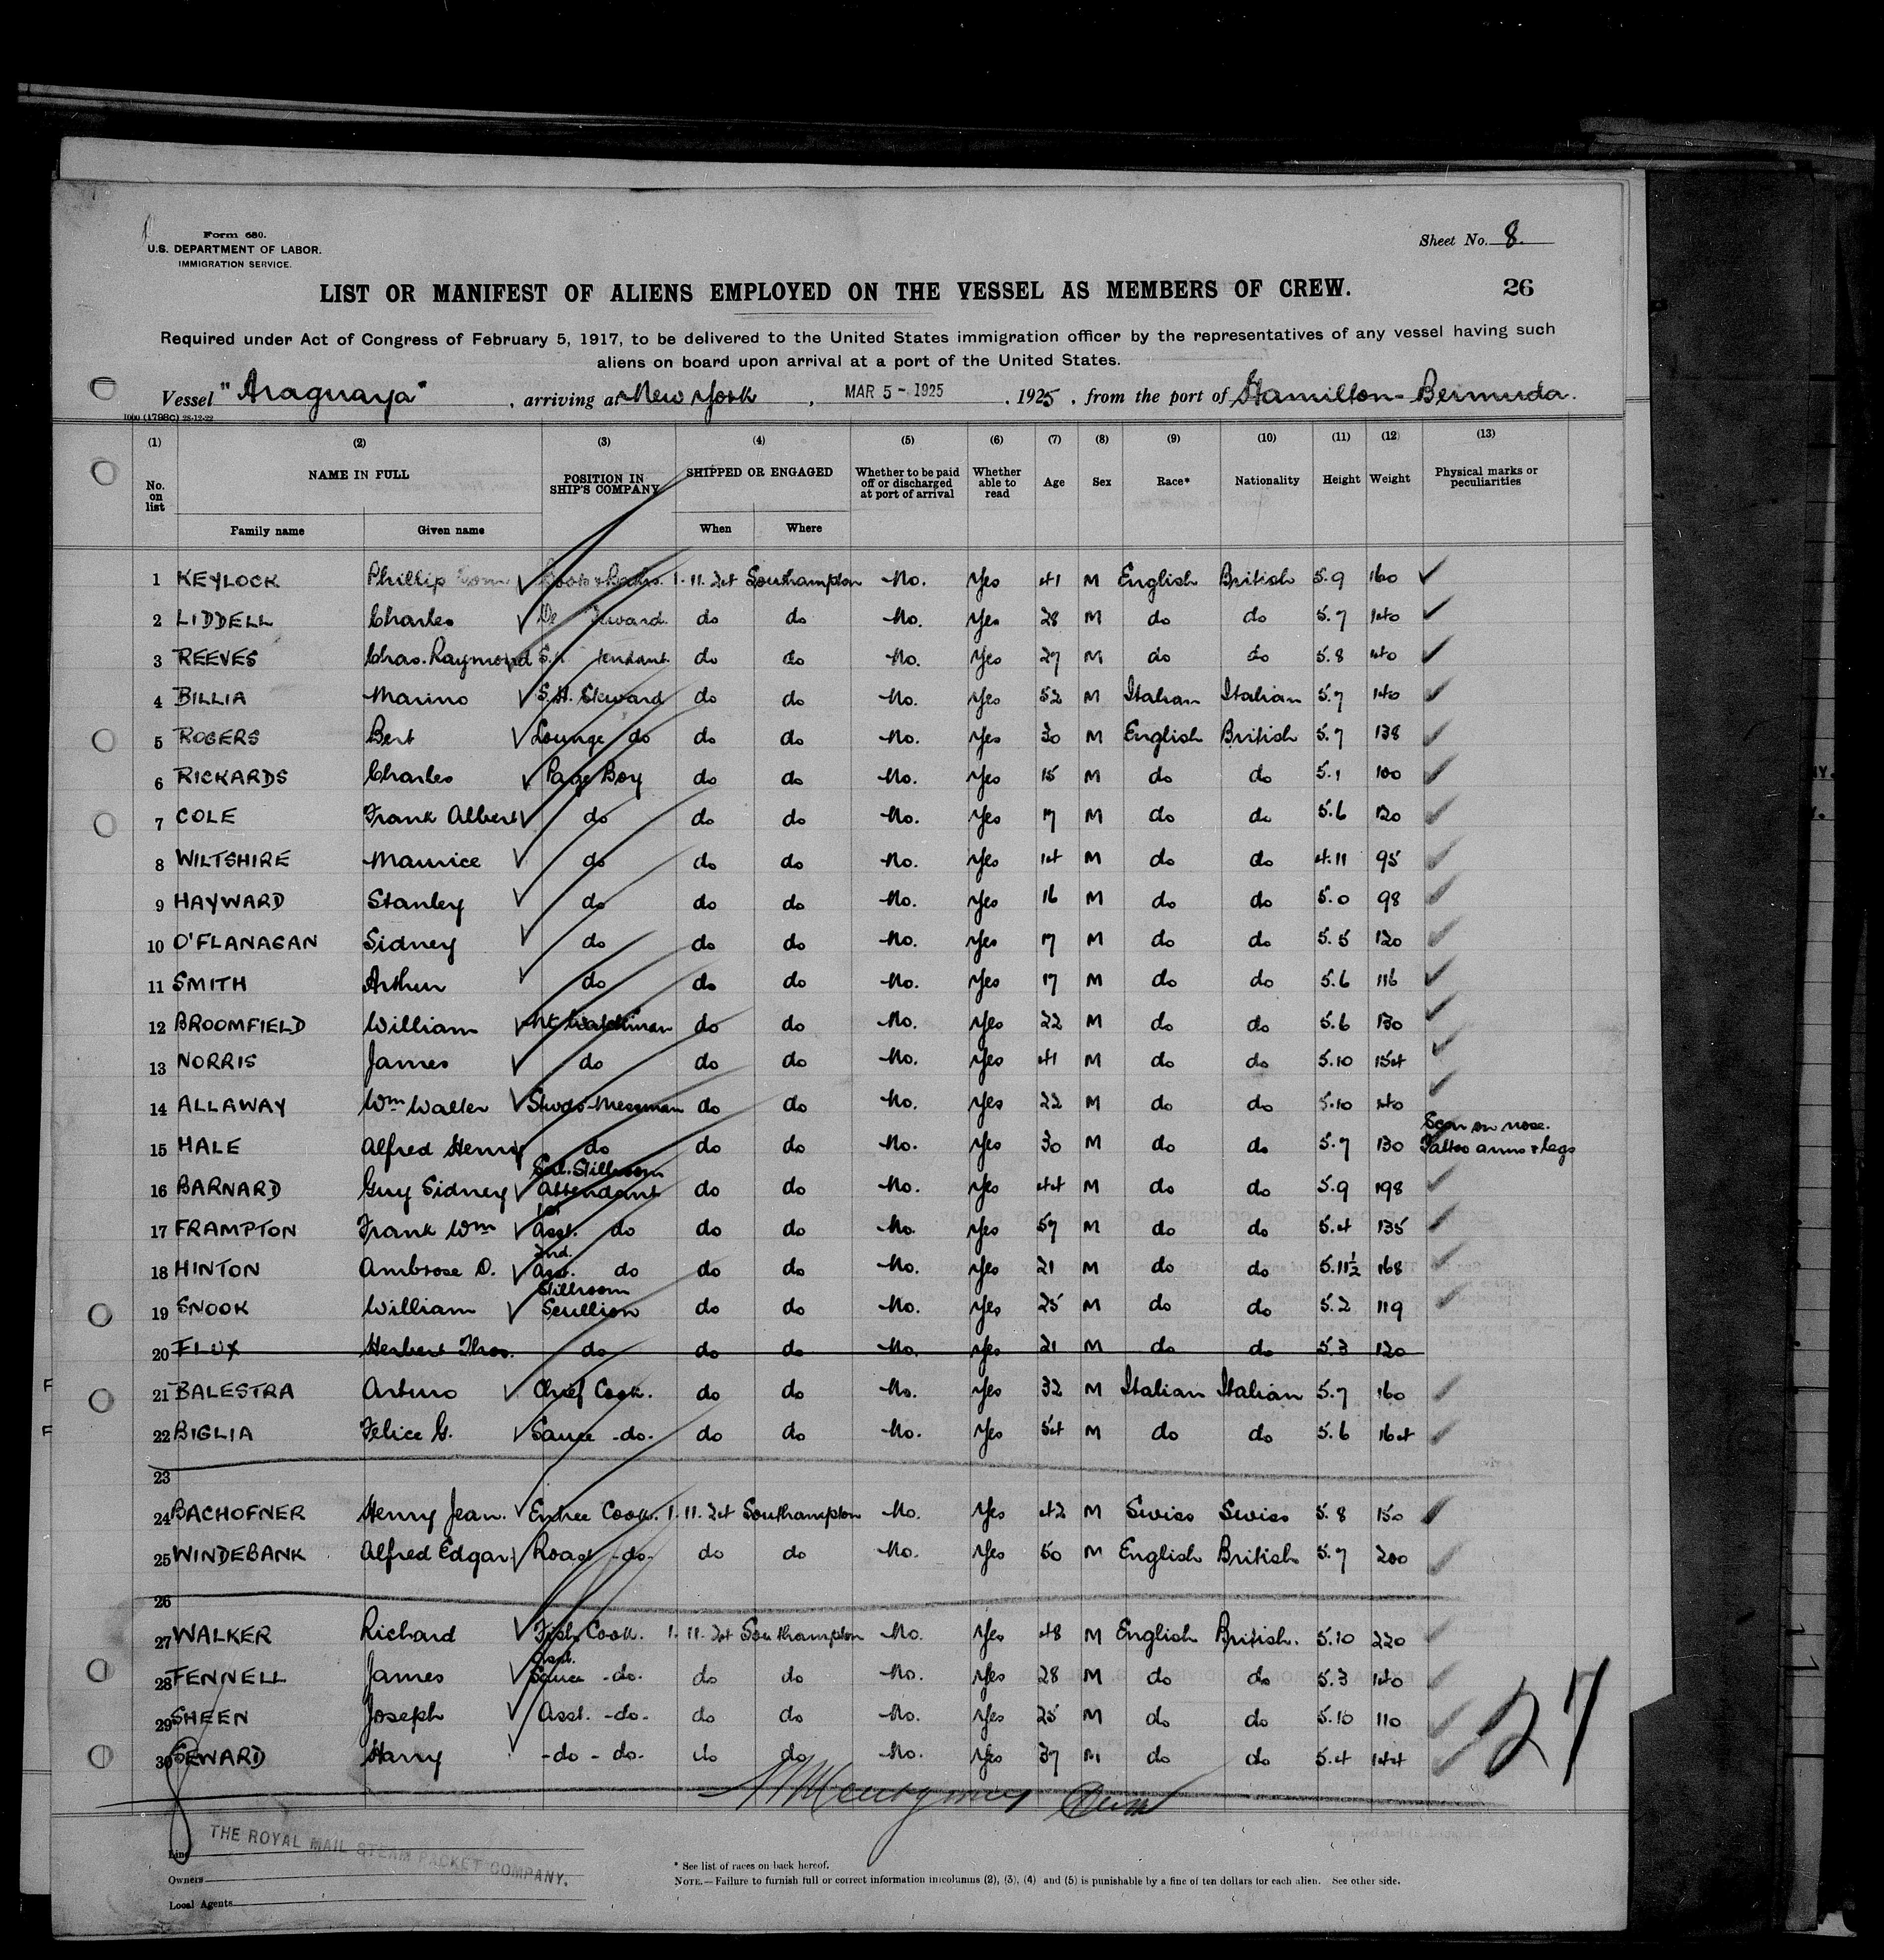 Form 680.
U.S. DEPARTMENT OF LABOR.
IMMIGRATION SERVICE.
Sheet No. 8.
LIST OR MANIFEST OF ALIENS EMPLOYED ON THE VESSEL AS MEMBERS OF CREW.
26
Required under Act of Congress of February 5, 1917, to be delivered to the United States immigration officer by the representatives of any vessel having such
aliens on board upon arrival at a port of the United States.
Vessel "Araguaya", arriving at New York, MAR 5 - 1925, 1925, from the port of Hamilton - Bermuda.
1000 (1798C) 28-12-22
(1) (2) (3) (4) (5) (6) (7) (8) (9) (10) (11) (12) (13)
No. on list NAME IN FULL POSITION IN SHIP'S COMPANY SHIPPED OR ENGAGED Whether to be paid off or discharged at port of arrival Whether able to read Age Sex Race* Nationality Height Weight Physical marks or peculiarities
Family name Given name When Where
1 KEYLOCK Phillip 1.11.24 Southampton No. Yes 41 M English British 5.9 160
2 LIDDELL Charles do do No. Yes 28 M do do 5.7 140
3 REEVES Chas. Raymond do do No. Yes 27 M do do 5.8 140
4 BILLIA Marino S.H. Steward do do No. Yes 52 M Italian Italian 5.7 140
5 ROGERS Bert Lounge do do do No. Yes 30 M English British 5.7 138
6 RICKARDS Charles Page Boy do do No. Yes 15 M do do 5.1 100
7 COLE Frank Albert do do do No. Yes 17 M do do 5.6 120
8 WILTSHIRE Maurice do do do No. Yes 14 M do do 4.11 95
9 HAYWARD Stanley do do do No. Yes 16 M do do 5.0 98
10 O'FLANAGAN Sidney do do do No. Yes 17 M do do 5.5 120
11 SMITH Arthur do do do No. Yes 17 M do do 5.6 116
12 BROOMFIELD William Nt. Watchman do do No. Yes 22 M do do 5.6 130
13 NORRIS James do do do No. Yes 41 M do do 5.10 154
14 ALLAWAY Wm Walter Stwds-Messman do do No. Yes 22 M do do 5.10 140
15 HALE Alfred Henry do do do No. Yes 30 M do do 5.7 130 Scar on nose. Tattoo arms & legs
16 BARNARD Guy Sidney Sal. Stillroom attendant do do No. Yes 44 M do do 5.9 198
17 FRAMPTON Frank Wm 1st Asst. do do do No. Yes 57 M do do 5.4 135
18 HINTON Ambrose D. 2nd. Asst. do do do No. Yes 21 M do do 5.11½ 168
19 SNOOK William Stillroom Scullion do do No. Yes 25 M do do 5.2 119
20 FLUX Herbert Thos. do do do No. Yes 21 M do do 5.3 120
F 21 BALESTRA Arturo Chief Cook. do do No. Yes 32 M Italian Italian 5.7 160
F 22 BIGLIA Felice G. Sauce -do- do do No. Yes 54 M do do 5.6 164
23
24 BACHOFNER Henry Jean. Entree Cook. 1.11.24 Southampton No. Yes 42 M Swiss Swiss 5.8 150
25 WINDEBANK Alfred Edgar Roast -do- do do No. Yes 50 M English British 5.7 200
26
27 WALKER Richard Fish Cook. 1.11.24 Southampton No. Yes 48 M English British. 5.10 220
28 FENNELL James Asst. Sauce -do- do do No. Yes 28 M do do 5.3 140
29 SHEEN Joseph Asst. -do- do do No. Yes 25 M do do 5.10 110
30 SEWARD Harry -do- do- do do No. Yes 37 M do do 5.4 144
27
Montgomery
Line
THE ROYAL MAIL STEAM PACKET COMPANY.
Owners
Local Agents
* See list of races on back hereof.
NOTE.—Failure to furnish full or correct information in columns (2), (3), (4) and (5) is punishable by a fine of ten dollars for each alien. See other side.